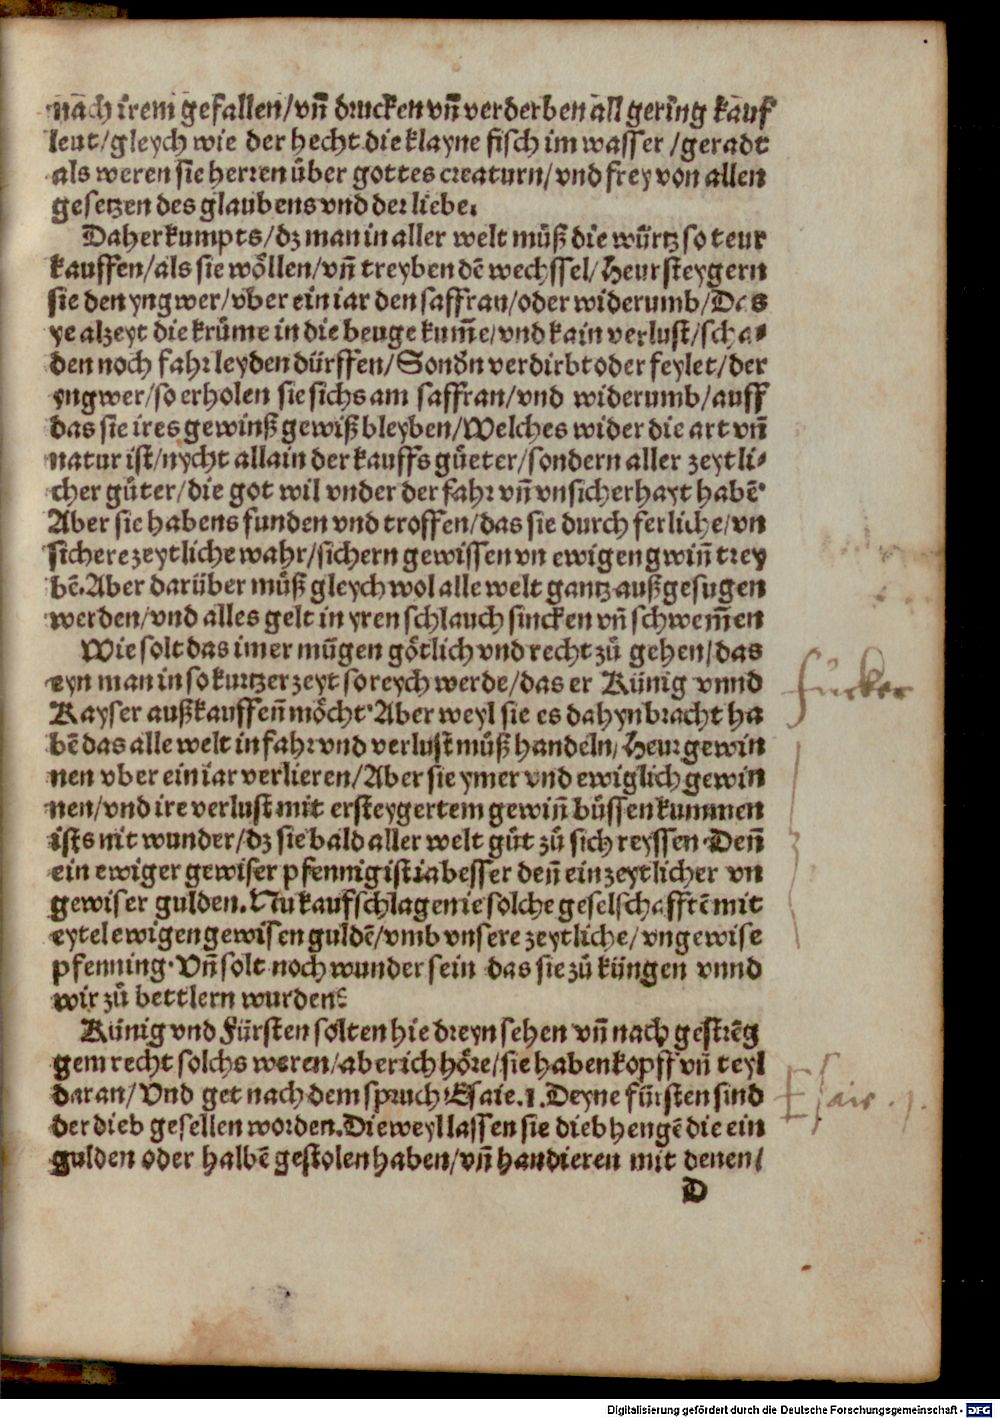 nach irem gefallen/vñ drucken vñ verderben all gering kauf
leut/gleych wie der hecht die klayne fisch im wasser/geradt
als weren sie herren über gottes creaturn/vnd frey von allen
gesetzen des glaubens vnd der liebe.
Daher kumpts/dz man in aller welt müß die würtz so teur
kauffen/als sie wöllen/vñ treyben dē wechssel/Heur steygern
sie den yngwer/vber ein iar den saffran/oder widerumb/Das
ye alzeyt die krüme in die beuge kum̄e/vnd kain verlust/scha-
den noch fahr leyden dürffen/Sonðn verdirbt oder feylet/der
yngwer/so erholen sie sichs am saffran/vnd widerumb/auff
das sie ires gewinß gewiß bleyben/Welches wider die art vñ
natur ist/nycht allain der kauffs güeter/sondern aller zeytli-
cher güter/die got wil vnder der fahr vñ vnsicherhayt habē.
Aber sie habens funden vnd troffen/das sie durch ferliche/vn
sichere zeytliche wahr/sichern gewissen vn ewigen gwiñ trey
bē.Aber darüber müß gleych wol alle welt gantz außgesugen
werden/vnd alles gelt in yren schlauch sincken vñ schwem̄en
Wie solt das imer mügen götlich vnd recht zů gehen/das
eyn man in so kurtzer zeyt so reych werde/das er Künig vnnd
Kayser außkauffen̄ möcht.Aber weyl sie es dahyn bracht ha
bē das alle welt in fahr vnd verlust müß handeln/Heur gewin
nen vber ein iar verlieren/Aber sie ymer vnd ewiglich gewin
nen/vnd ire verlust mit ersteygertem gewiñ büssen kummen
ists nit wunder/dz sie bald aller welt güt zů sich reyssen.Deñ
ein ewiger gewiser pfennig ist ia besser deñ ein zeytlicher vn
gewiser gulden.Nu kaufschlagen ie solche geselschafftē mit
eytel ewigen gewisen guldē/vmb vnsere zeytliche/vngewise
pfenning.Vñ solt noch wunder sein das sie zů küngen vnnd
wir zů bettlern wurden?
Künig vnd Fürsten solten hie dreyn sehen vñ nach gestrēg
gem recht solchs weren/aber ich höre/sie haben kopff vñ teyl
daran/Vnd get nach dem spruch Esaie.1.Deyne fürsten sind
der dieb gesellen worden.Dieweyl lassen sie dieb hengē die ein
gulden oder halbē gestolen haben/vñ handieren mit denen/
D
Fucker
Esaie .1.
Digitalisierung gefördert durch die Deutsche Forschungsgemeinschaft - DFG